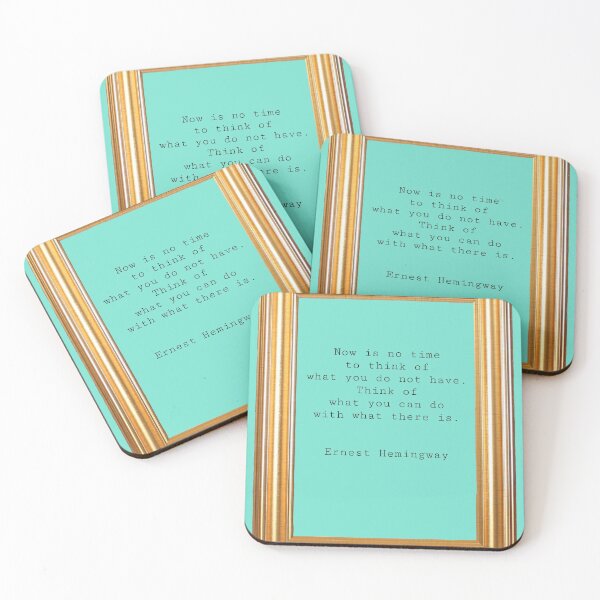 Now is no time
to think of
what you do not have.
Think of
what you can do
with there is.
Now is no time
to think of
what you do not have.
Think of
what you can do
with what there is.
Ernest Hemingway
Now is no time
to think of
what you do not have.
Think of
what you can do
with what there is.
Ernest
Now is no time
to think of
what you do not have.
Think of
what you can do
with what there is.
Ernest Hemingway